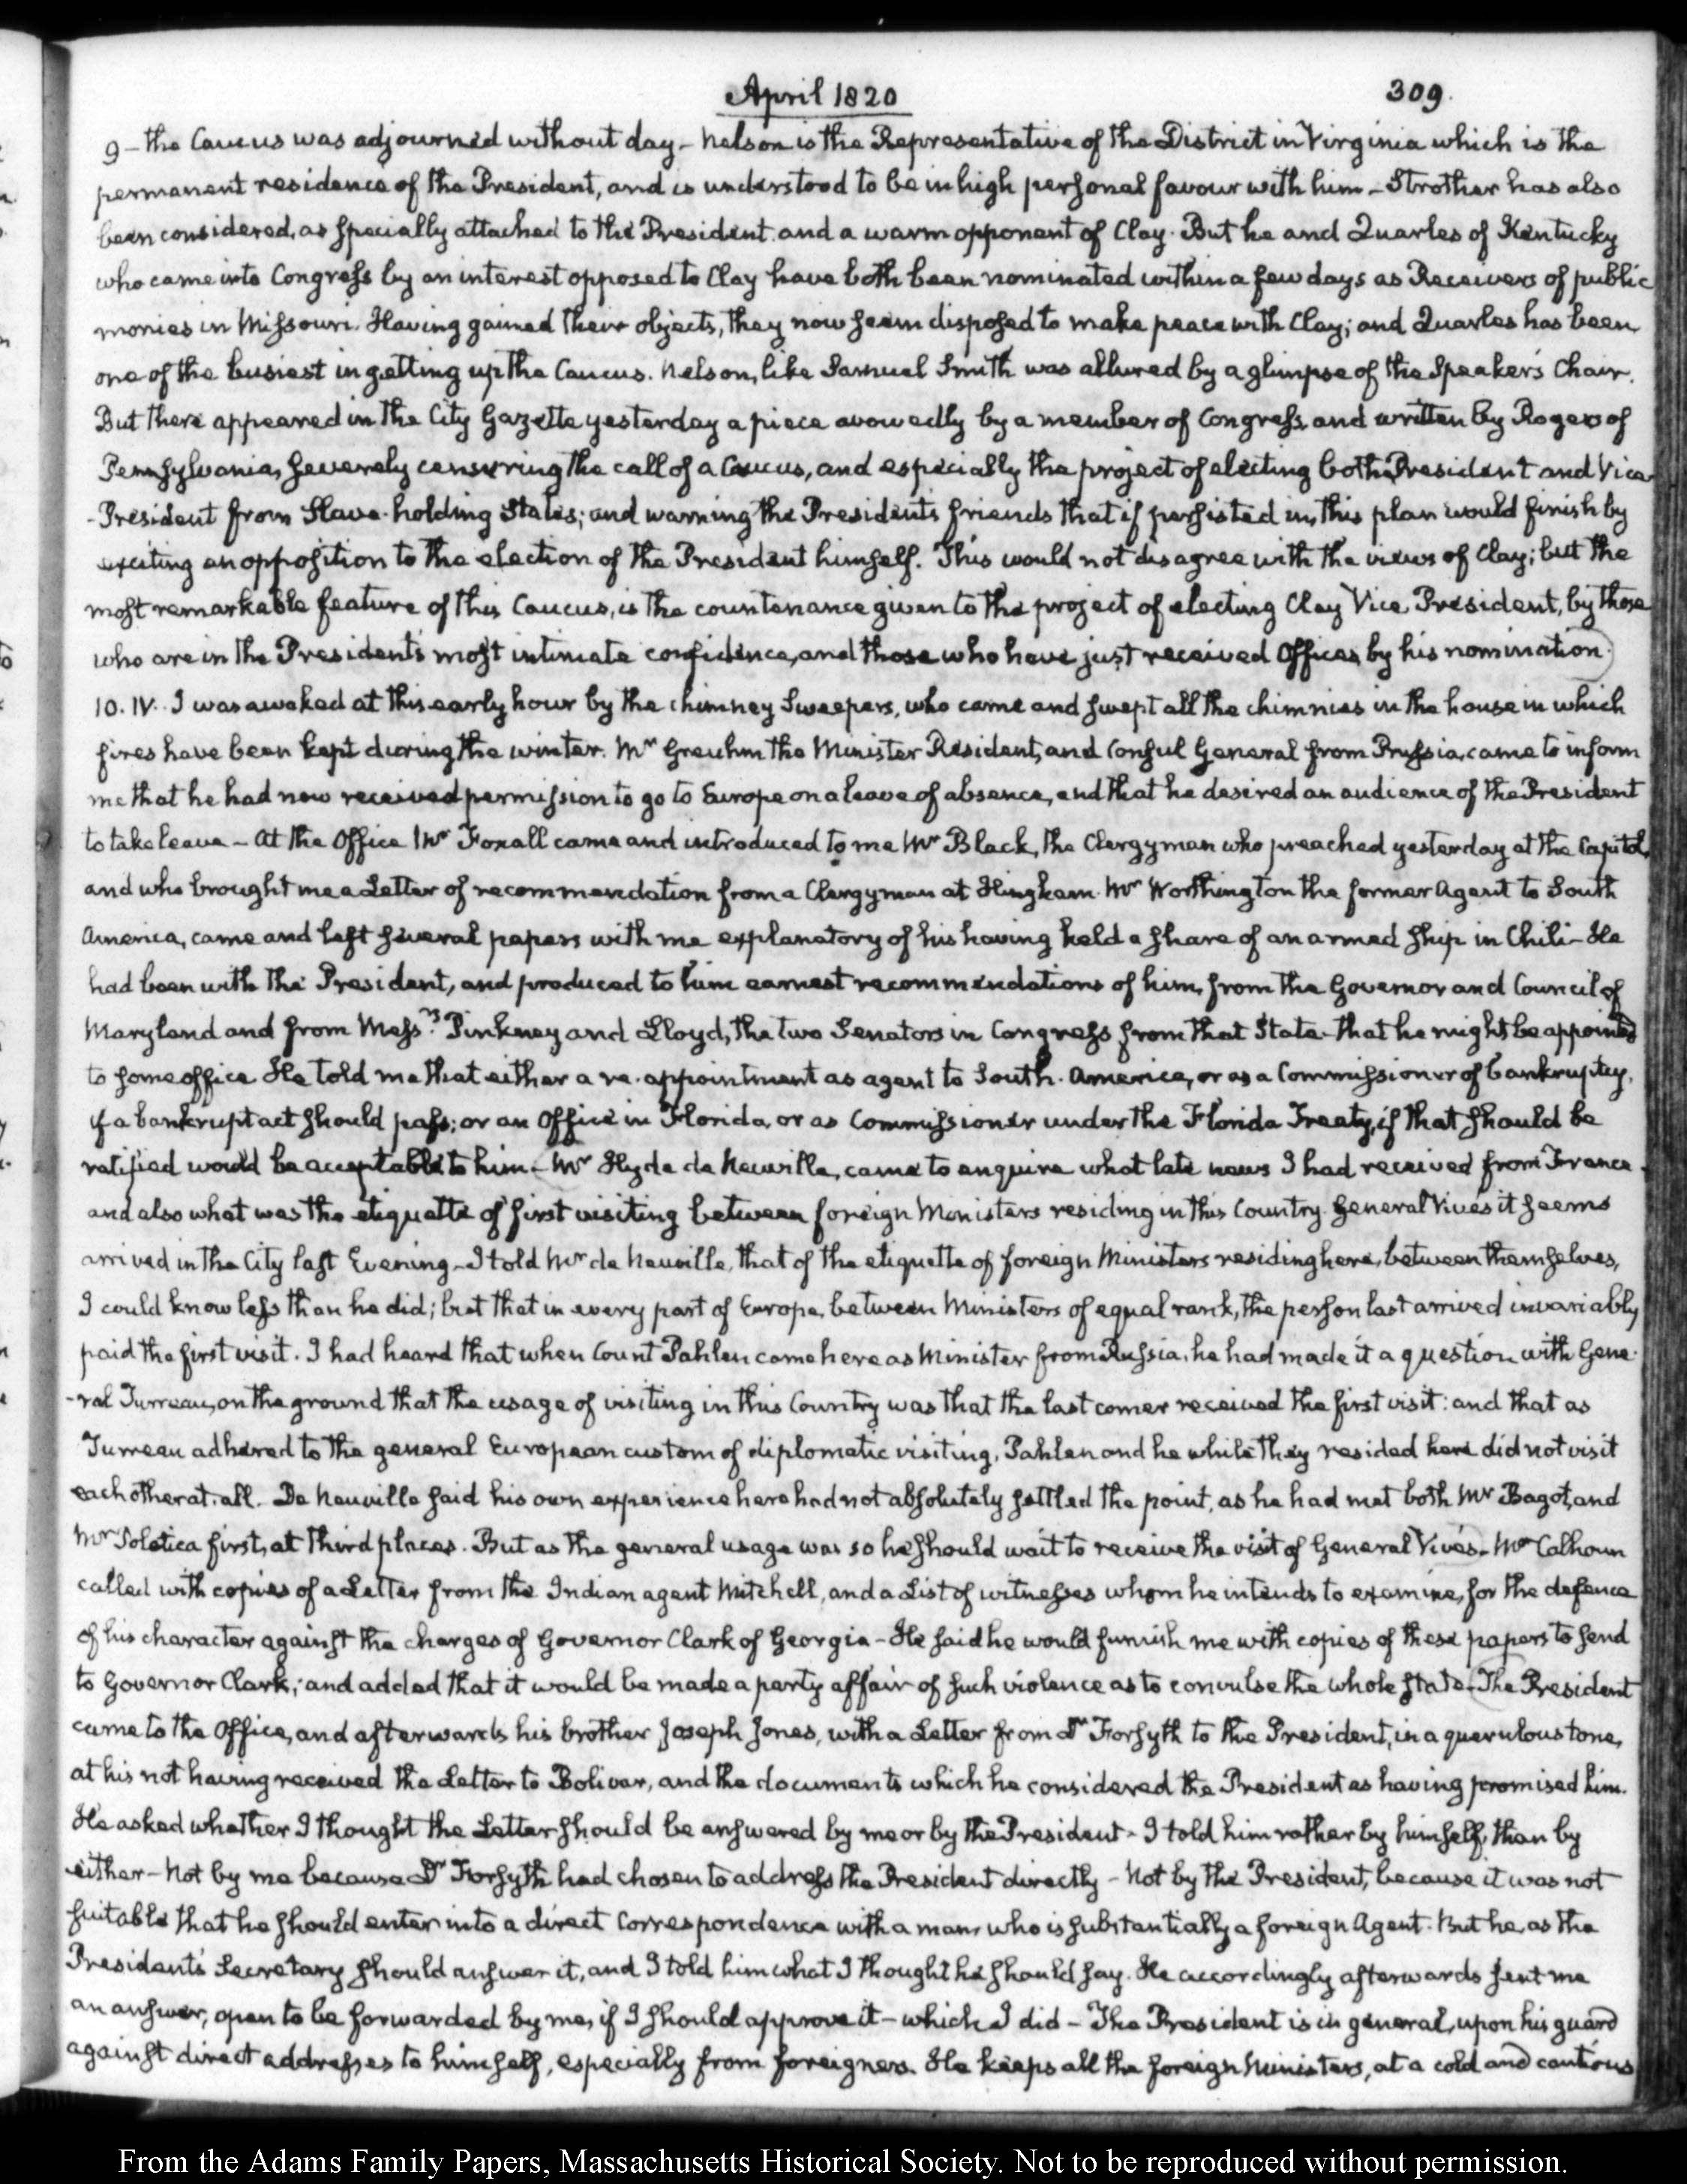 April 1820
309.
9 – the Caucus was adjourned without day – Nelson is the Representative of the District in Virginia which is the
permanent residence of the President, and is understood to be in high personal favour with him – Strother has also
been considered, as specially attached to the President and a warm opponent of Clay. But he and Quarles of Kentucky
who came into Congress by an interest opposed to Clay have both been nominated within a few days as Receivers of public
monies in Missouri. Having gained their objects, they now seem disposed to make peace with Clay; and Quarles has been
one of the busiest in getting up the Caucus. Nelson, like Samuel Smith was allured by a glimpse of the Speaker's Chair.
But there appeared in the City Gazette yesterday a piece avowedly by a member of Congress, and written by Rogers of
Pennsylvania, severely censuring the call of a Caucus, and especially the project of electing both President and Vice
-President from Slave-holding States; and warning the President's friends that if persisted in, this plan would finish by
exciting an opposition to the election of the President himself. This would not disagree with the views of Clay; but the
most remarkable feature of this Caucus, is the countenance given to the project of electing Clay Vice President, by those
who are in the President's most intimate confidence, and those who have just received Offices by his nomination.
10. IV. I was awaked at this early hour by the chimney Sweepers, who came and swept all the chimnies in the house in which
fires have been kept during the winter. Mr Greuhm the Minister Resident, and Consul General from Prussia, came to inform
me that he had now received permission to go to Europe on a leave of absence, and that he desired an audience of the President
to take leave – At the Office Mr Foxall came and introduced to me Mr Black, the Clergyman who preached yesterday at the Capitol,
and who brought me a Letter of recommendation from a Clergyman at Hingham. Mr Worthington the former Agent to South
America, came and left several papers with me explanatory of his having held a share of an armed ship in Chili – He
had been with the President, and produced to him earnest recommendations of him, from the Governor and Council of
Maryland and from Messrs Pinkney and Lloyd, the two Senators in Congress from that State that he might be appointed
to some office. He told me that either a re-appointment as agent to South-America, or as a Commissioner of bankruptcy,
if a bankrupt act should pass; or an Office in Florida, or as Commissioner under the Florida Treaty, if that should be
ratified would be acceptable to him – Mr Hyde de Neuville, came to enquire what late news I had received from France
and also what was the etiquette of first visiting between foreign Ministers residing in this Country. General Vivés it seems
arrived in the City last Evening – I told Mr de Neuville, that of the etiquette of foreign Ministers residing here, between themselves,
I could know less than he did; but that in every part of Europe, between Ministers of equal rank, the person last arrived invariably
paid the first visit. I had heard that when Count Pahlen came here as Minister from Russia, he had made it a question with Gene-
-ral Turreau, on the ground that the usage of visiting in this Country was that the last comer received the first visit: and that as
Turreau adhered to the general European custom of diplomatic visiting, Pahlen and he while they resided here did not visit
each other at all. De Neuville said his own experience here had not absolutely settled the point, as he had met both Mr Bagot, and
Mr Poletica first, at third places. But as the general usage was so he should wait to receive the visit of General Vivés – Mr Calhoun
called with copies of a Letter from the Indian agent Mitchell, and a List of witnesses whom he intends to examine, for the defence
of his character against the charges of Governor Clark of Georgia – He said he would furnish me with copies of these papers to send
to Governor Clark; and added that it would be made a party affair of such violence as to convulse the whole State – The President
came to the Office, and afterwards his brother Joseph Jones, with a Letter from Dr Forsyth to the President, in a querulous tone,
at his not having received the Letter to Bolivar, and the documents which he considered the President as having promised him.
He asked whether I thought the Letter should be answered by me or by the President – I told him rather by himself, than by
either – Not by me because Dr Forsyth had chosen to address the President directly – Not by the President, because it was not
suitable that he should enter into a direct Correspondence with a man, who is substantially a foreign Agent. But he, as the
President's Secretary should answer it, and I told him what I thought he should say. He accordingly afterwards sent me
an answer, open to be forwarded by me, if I should approve it – which I did – The President is in general, upon his guard
against direct addresses to himself, especially from foreigners. He keeps all the foreign Ministers, at a cold and cautious
From the Adams Family Papers, Massachusetts Historical Society. Not to be reproduced without permission.